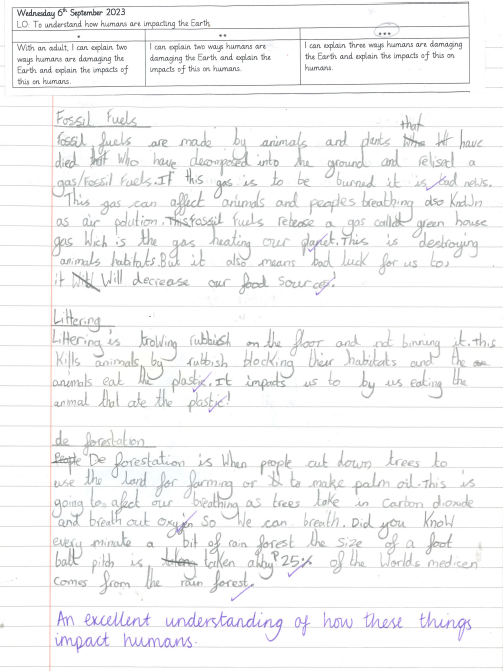 Wednesday 6th September 2023
LO: To understand how humans are impacting the Earth
*
**
***
With an adult, I can explain two ways humans are damaging the Earth and explain the impacts of this on humans.
I can explain two ways humans are damaging the Earth and explain the impacts of this on humans.
I can explain three ways humans are damaging the Earth and explain the impacts of this on humans.
Fossil Fuels
that
Fossil fuels are made by animals and plants have
died Who have decomposed into the ground and relised a
gas/Fossil Fuels. If this gas is to be burned it is bad news.
This gas can affect animals and peoples breathing also KndWn
as air polution. This Fossil Fuels release a gas called green house
gas Wich is the gas heating our planet. This is destroying
animals habitats. But it also means bad luck for us to,
it Will decrease our food source!
Littering
Littering is trowing rubbish on the floor and not binning it. This
Kills animals by rubbish blocking their habitats and the
animals eat the plastic. It impacts us to by us eating the
animal that ate the plastic!
de forestation
People De forestation is When people cut down trees to
use the land for farming or to make palm oil. This is
going to afect our breathing as trees take in Carbon dioxide
and breath out oxygen So We can breath. Did you Know
every minute a bit of rain forest the size of a foot
ball pitch is taken away? 25% of the Worlds medicen
comes from the rain forest.
An excellent understanding of how these things
impact humans.